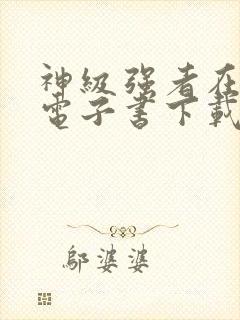 神级强者在
電子書下載
鄔婆婆